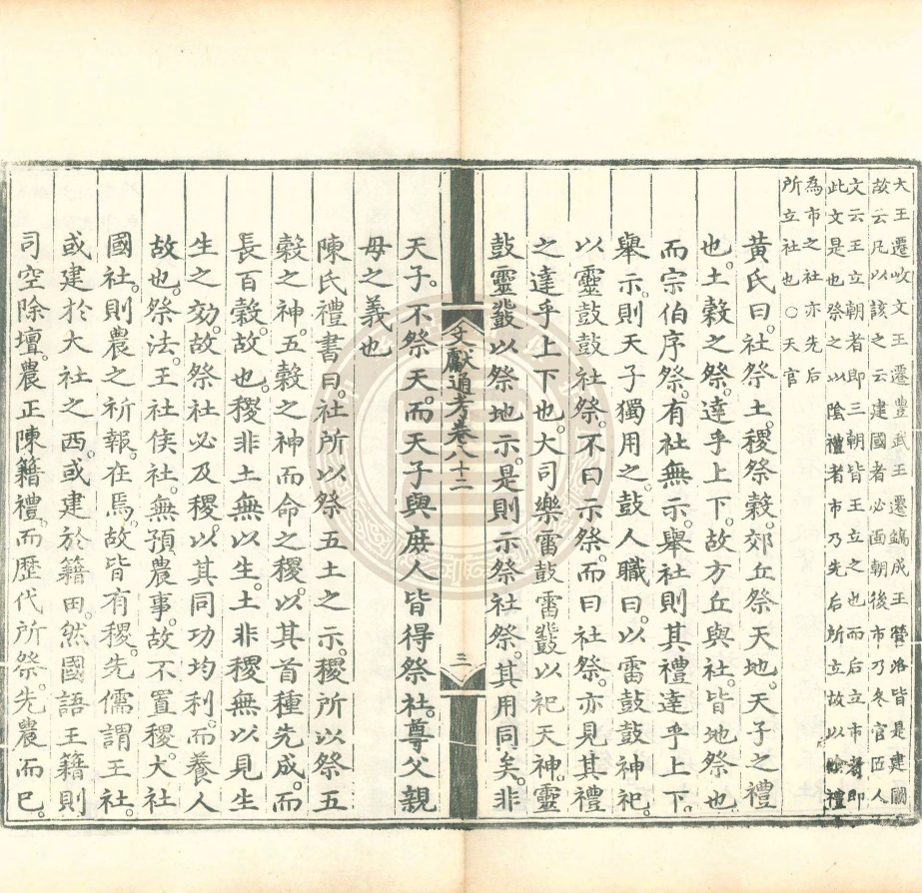 大王遷岐文王遷豐武王遷鎬成王營洛皆是建國
故云凡以該之云建國者必面朝後市乃冬官匠人
文云王立朝者即三朝皆王立之也而后立市者即
此文是也祭之以陰禮者市乃先后所立故以陰禮
為市之社亦先后
所立社也○天官
黃氏曰社祭土稷祭穀郊丘祭天地天子之禮
也土穀之祭達乎上下故方丘與社皆地祭也
而宗伯序祭有社無示舉社則其禮達乎上下
舉示則天子獨用之鼓人職曰以雷鼓鼓神祀
以靈鼓鼓社祭不曰示祭而曰社祭亦見其禮
之達乎上下也大司樂雷鼓雷鼗以祀天神靈
鼓靈鼗以祭地示是則示祭社祭其用同矣非
文獻通考卷八十二 三
天子不祭天而天子與庶人皆得祭社尊父親
母之義也
陳氏禮書曰社所以祭五土之示稷所以祭五
穀之神五穀之神而命之稷以其首種先成而
長百穀故也稷非土無以生土非稷無以見生
生之効故祭社必及稷以其同功均利而養人
故也祭法王社侯社無預農事故不置稷大社
國社則農之祈報在焉故皆有稷先儒謂王社
或建於大社之西或建於籍田然國語王籍則
司空除壇農正陳籍禮而歷代所祭先農而已